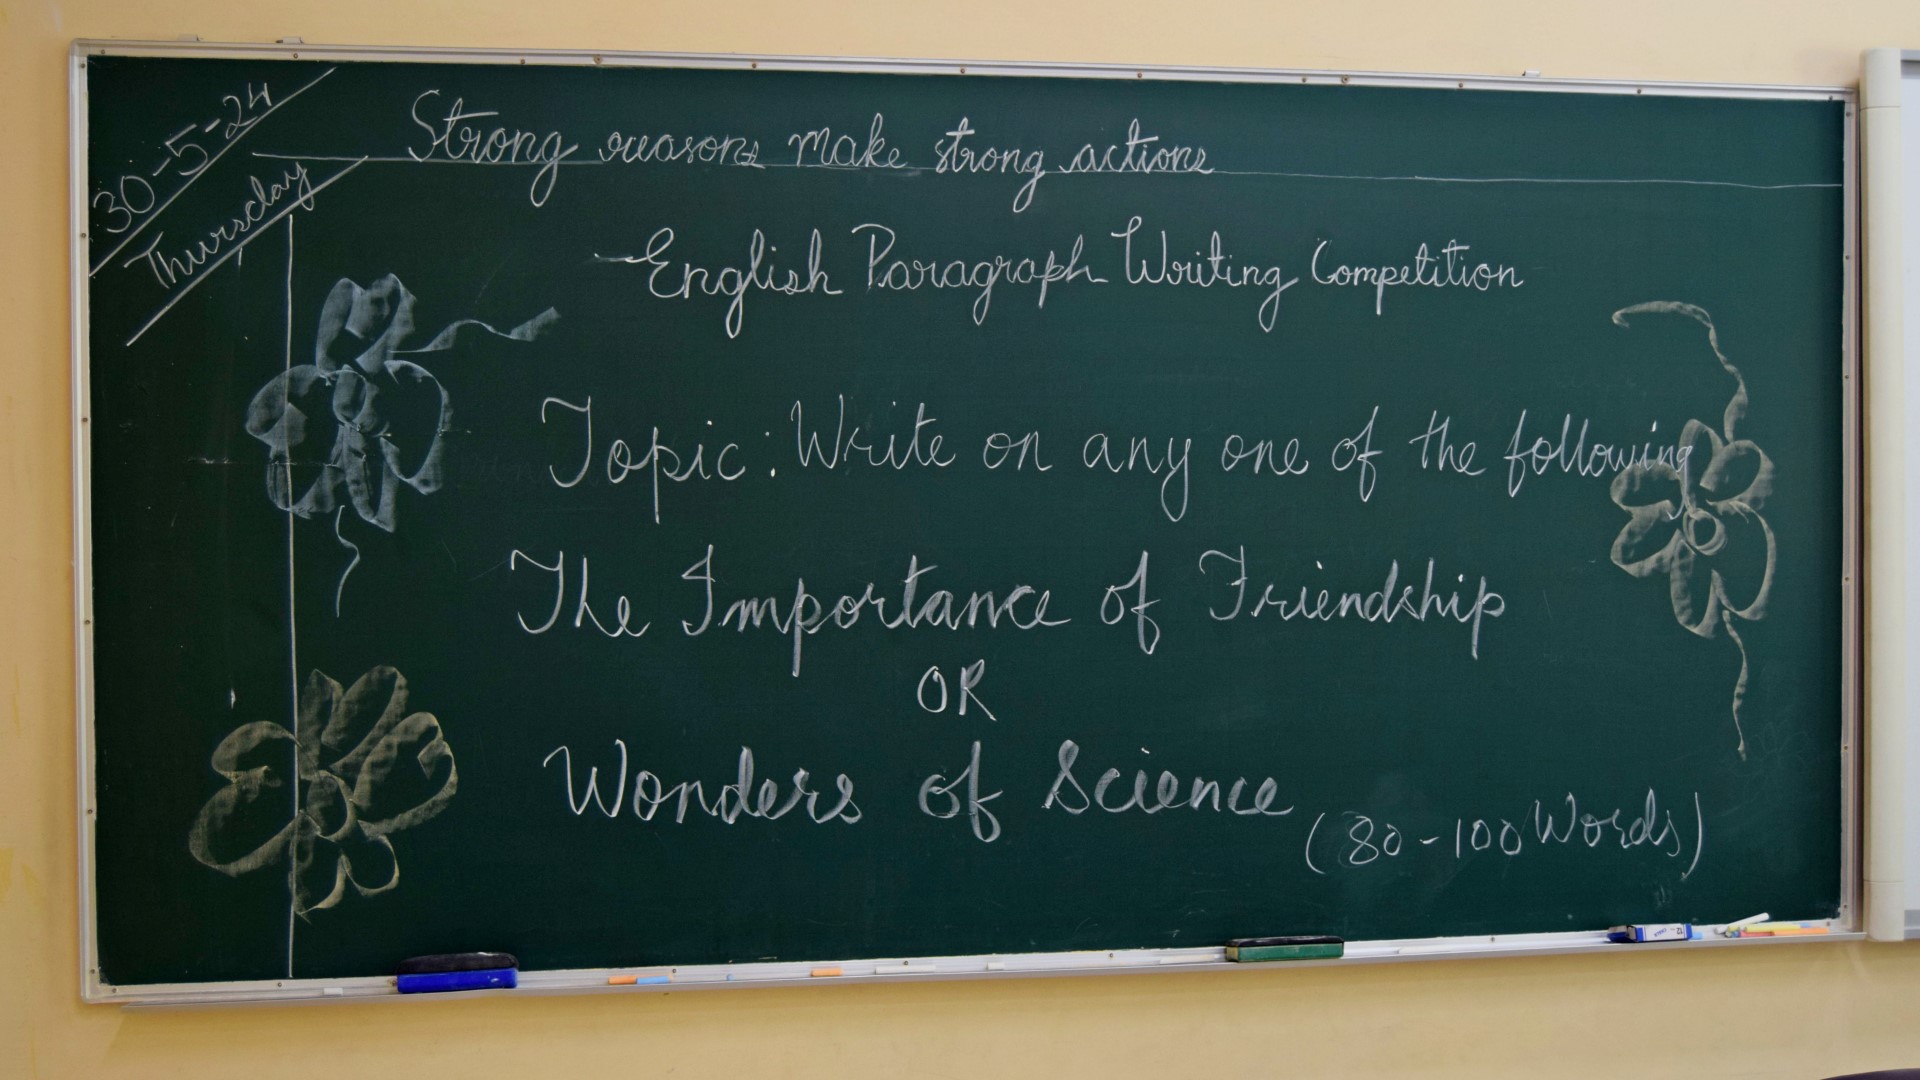 30-5-24
Thursday
Strong reasons make strong actions
English Paragraph Writing Competition
Topic: Write on any one of the following
The Importance of Friendship
OR
Wonders of Science
(80-100 Words)